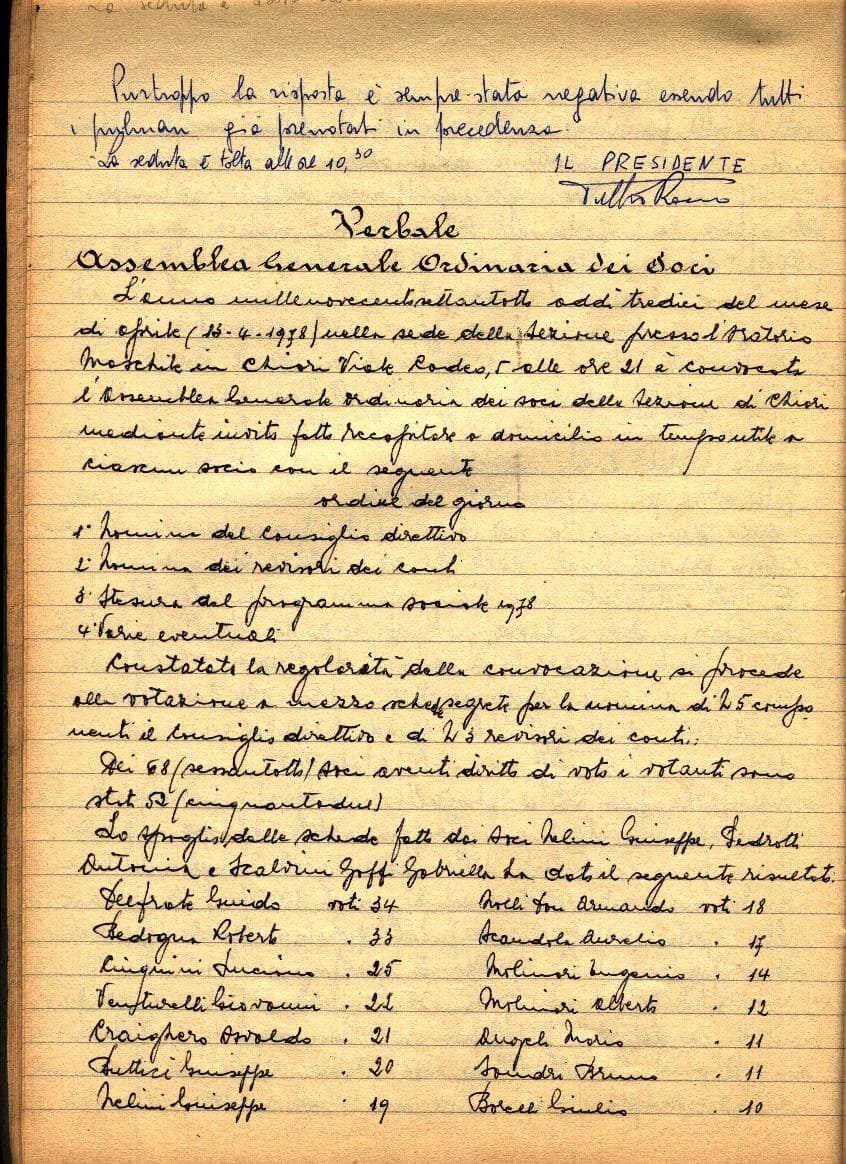 La seduta è
Purtroppo la risposta è sempre stata negativa essendo tutti
i pulman già prenotati in precedenza.
La seduta è tolta alle ore 10,30
IL PRESIDENTE
Verbale
Assemblea Generale Ordinaria dei Soci
L'anno millenovecentosettantotto addì tredici del mese
di aprile (13-4-1978) nella sede della Sezione presso l'Oratorio
Maschile in Chiari Viale Cadeo, 5 alle ore 21 è convocata
l'Assemblea Generale ordinaria dei soci della Sezione di Chiari
mediante invito fatto recapitare a domicilio in tempo utile a
ciascun socio con il seguente
ordine del giorno
1° Nomina del Consiglio direttivo
2° Nomina dei revisori dei conti
3° Stesura del programma sociale 1978
4° Varie eventuali
Constatata la regolarità della convocazione si procede
alla votazione a mezzo schede segrete per la nomina di N 5 compo
nenti il Consiglio direttivo e di N 3 revisori dei conti:
Dei 68 (sessantotto) soci aventi diritto di voto i votanti sono
stati 52 (cinquantadue)
Lo spoglio delle schede fatto dai soci Nelini Giuseppe, Pedrotti
Antonia e Scalvini Goffi Gabriella ha dato il seguente risultato.
Delfrate Guido voti 34 Nolli Don Armando voti 18
Bedogna Roberto . 33 Scandola Aurelio . 17
Cinquini Luciano . 25 Molinari Eugenio . 14
Venturelli Giovanni . 22 Molinari Alberto . 12
Craighero Osvaldo . 21 Angeli Mario . 11
Buttici Giuseppe . 20 Soindri Bruno . 11
Nelini Giuseppe . 19 Borell Giulio . 10